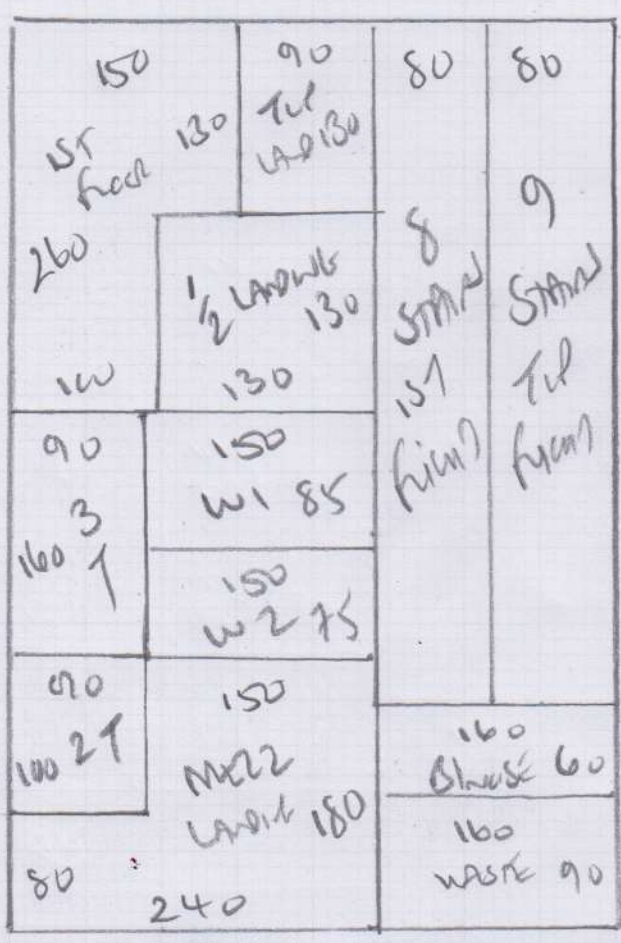 150
1ST
FLOOR
130
260
100
90
TOP
LAND 130
80
8
STAIR
1ST
FLIGHT
80
9
STAIR
TOP
FLIGHT
1/2 LANDING
130
130
90
3
160 T
150
W1 85
150
W2 75
90
100 2T
150
MEZZ
LANDING 180
80
240
160
60
160
WASTE 90